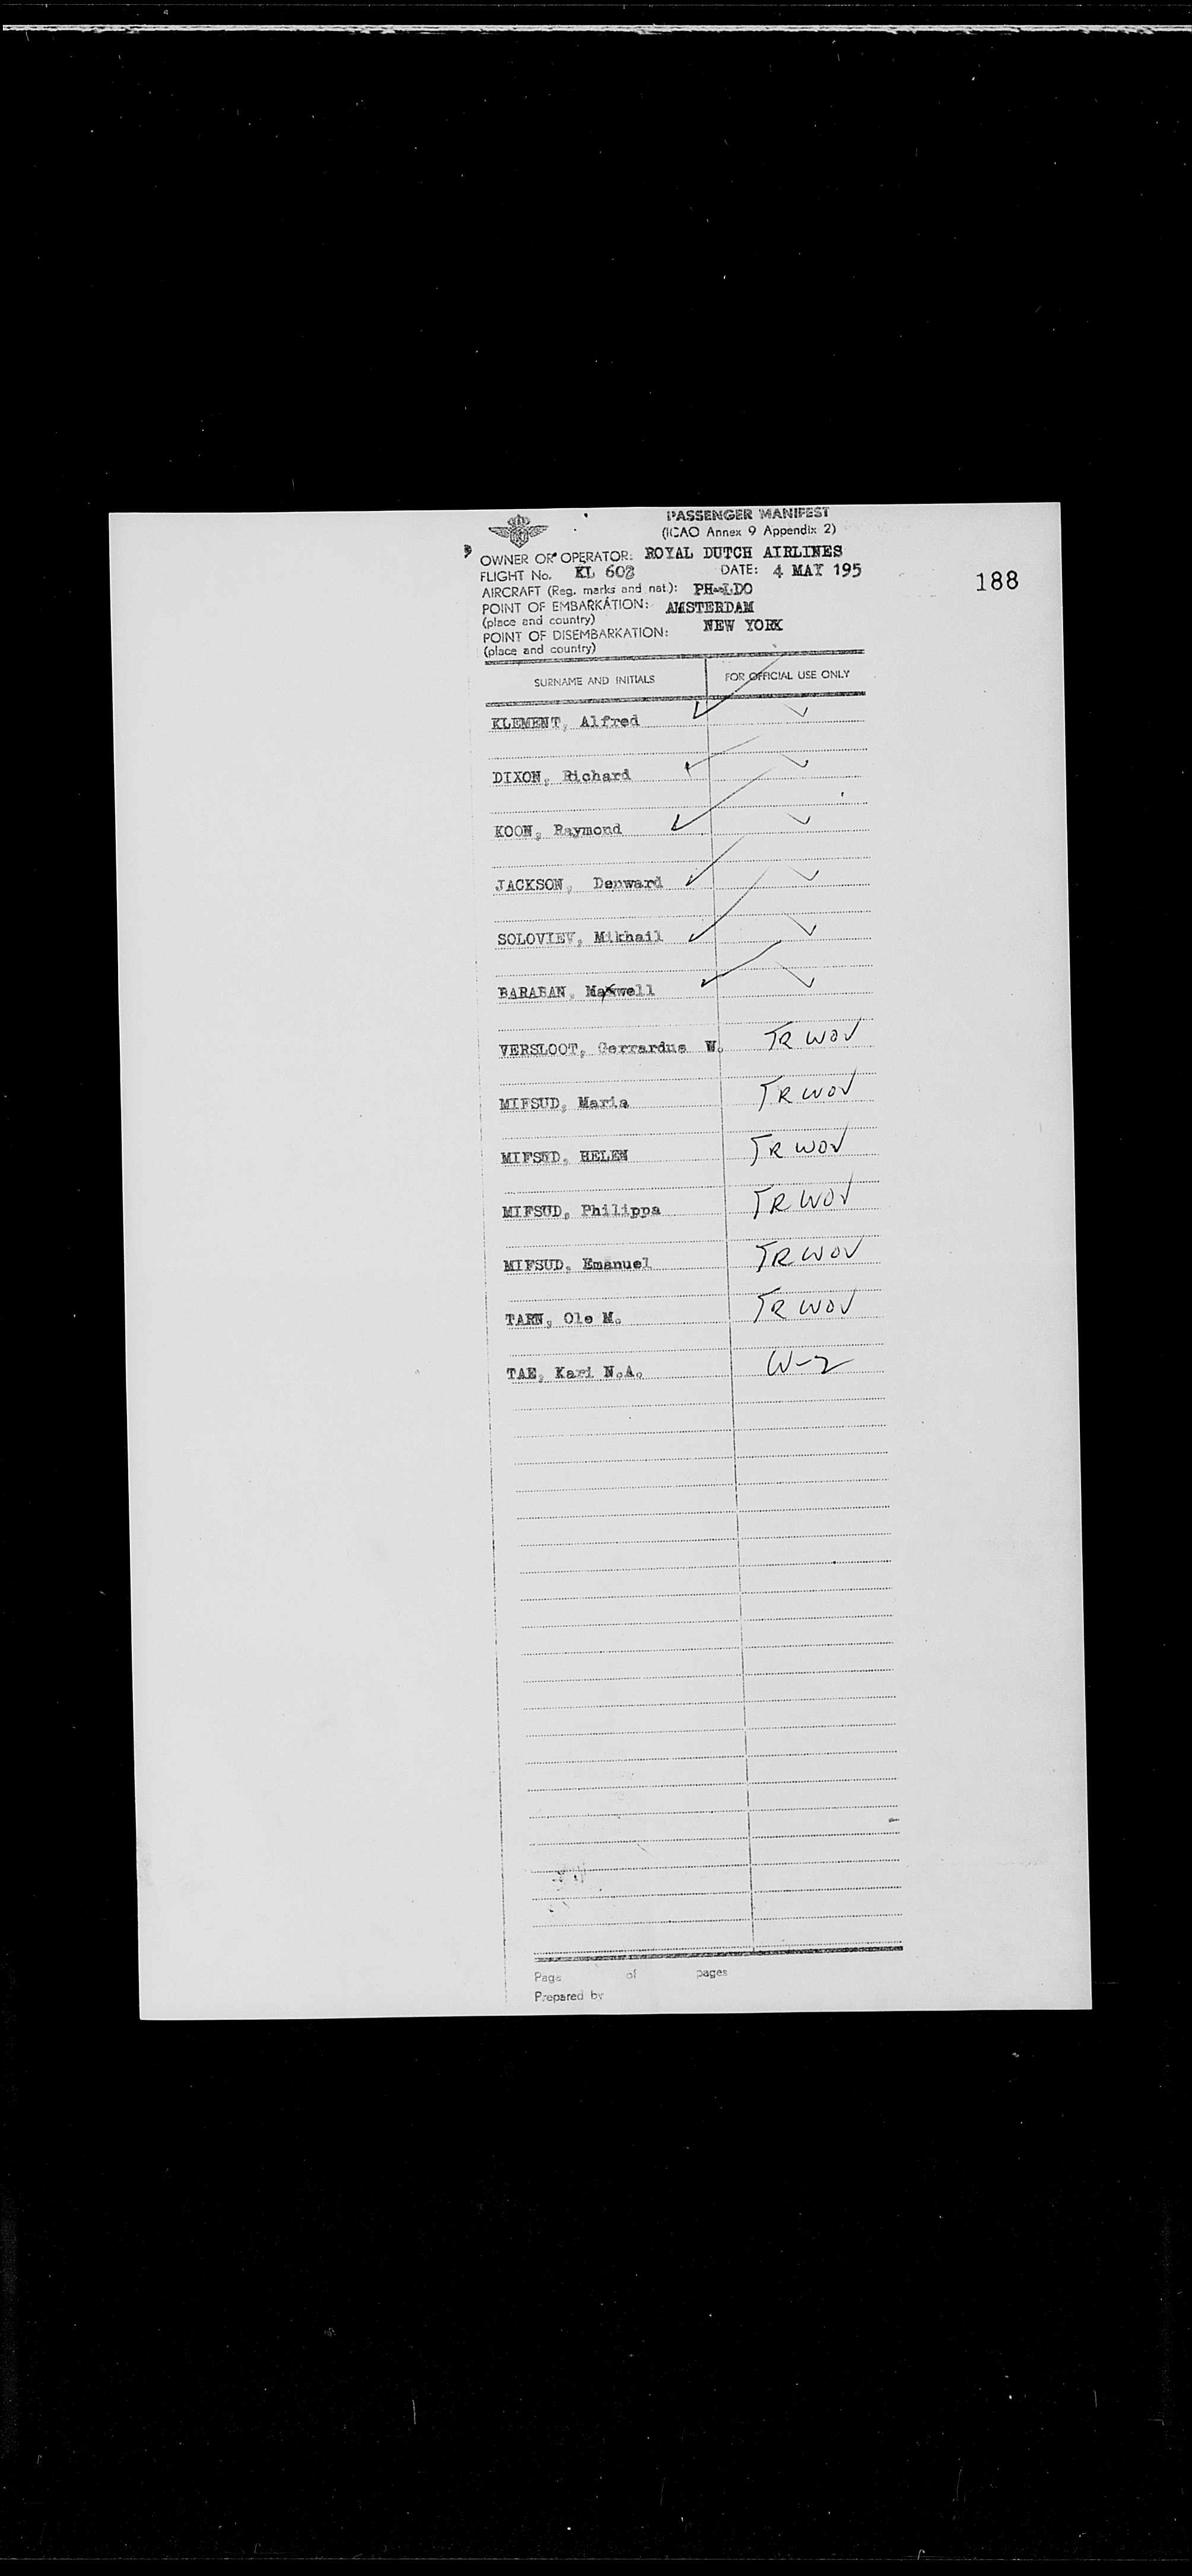 PASSENGER MANIFEST
(ICAO Annex 9 Appendix 2)
OWNER OR OPERATOR: ROYAL DUTCH AIRLINES
FLIGHT No. KL 602 DATE: 4 MAY 195
188
AIRCRAFT (Reg. marks and nat.): PH-LDO
POINT OF EMBARKATION: AMSTERDAM
(place and country)
POINT OF DISEMBARKATION: NEW YORK
(place and country)
SURNAME AND INITIALS FOR OFFICIAL USE ONLY
KLEMENT, Alfred
DIXON, Richard
KOON, Raymond
JACKSON, Denward
SOLOVIEV, Mikhail
BARABAN, Maxwell
VERSLOOT, Gerrardus W. TR WOV
MIFSUD, Maria TR WOV
MIFSUD, HELEN TR WOV
MIFSUD, Philippa TR WOV
MIFSUD, Emanuel TR WOV
TARN, Ole M. TR WOV
TAE, Kari N.A. W-2
Page of pages
Prepared by